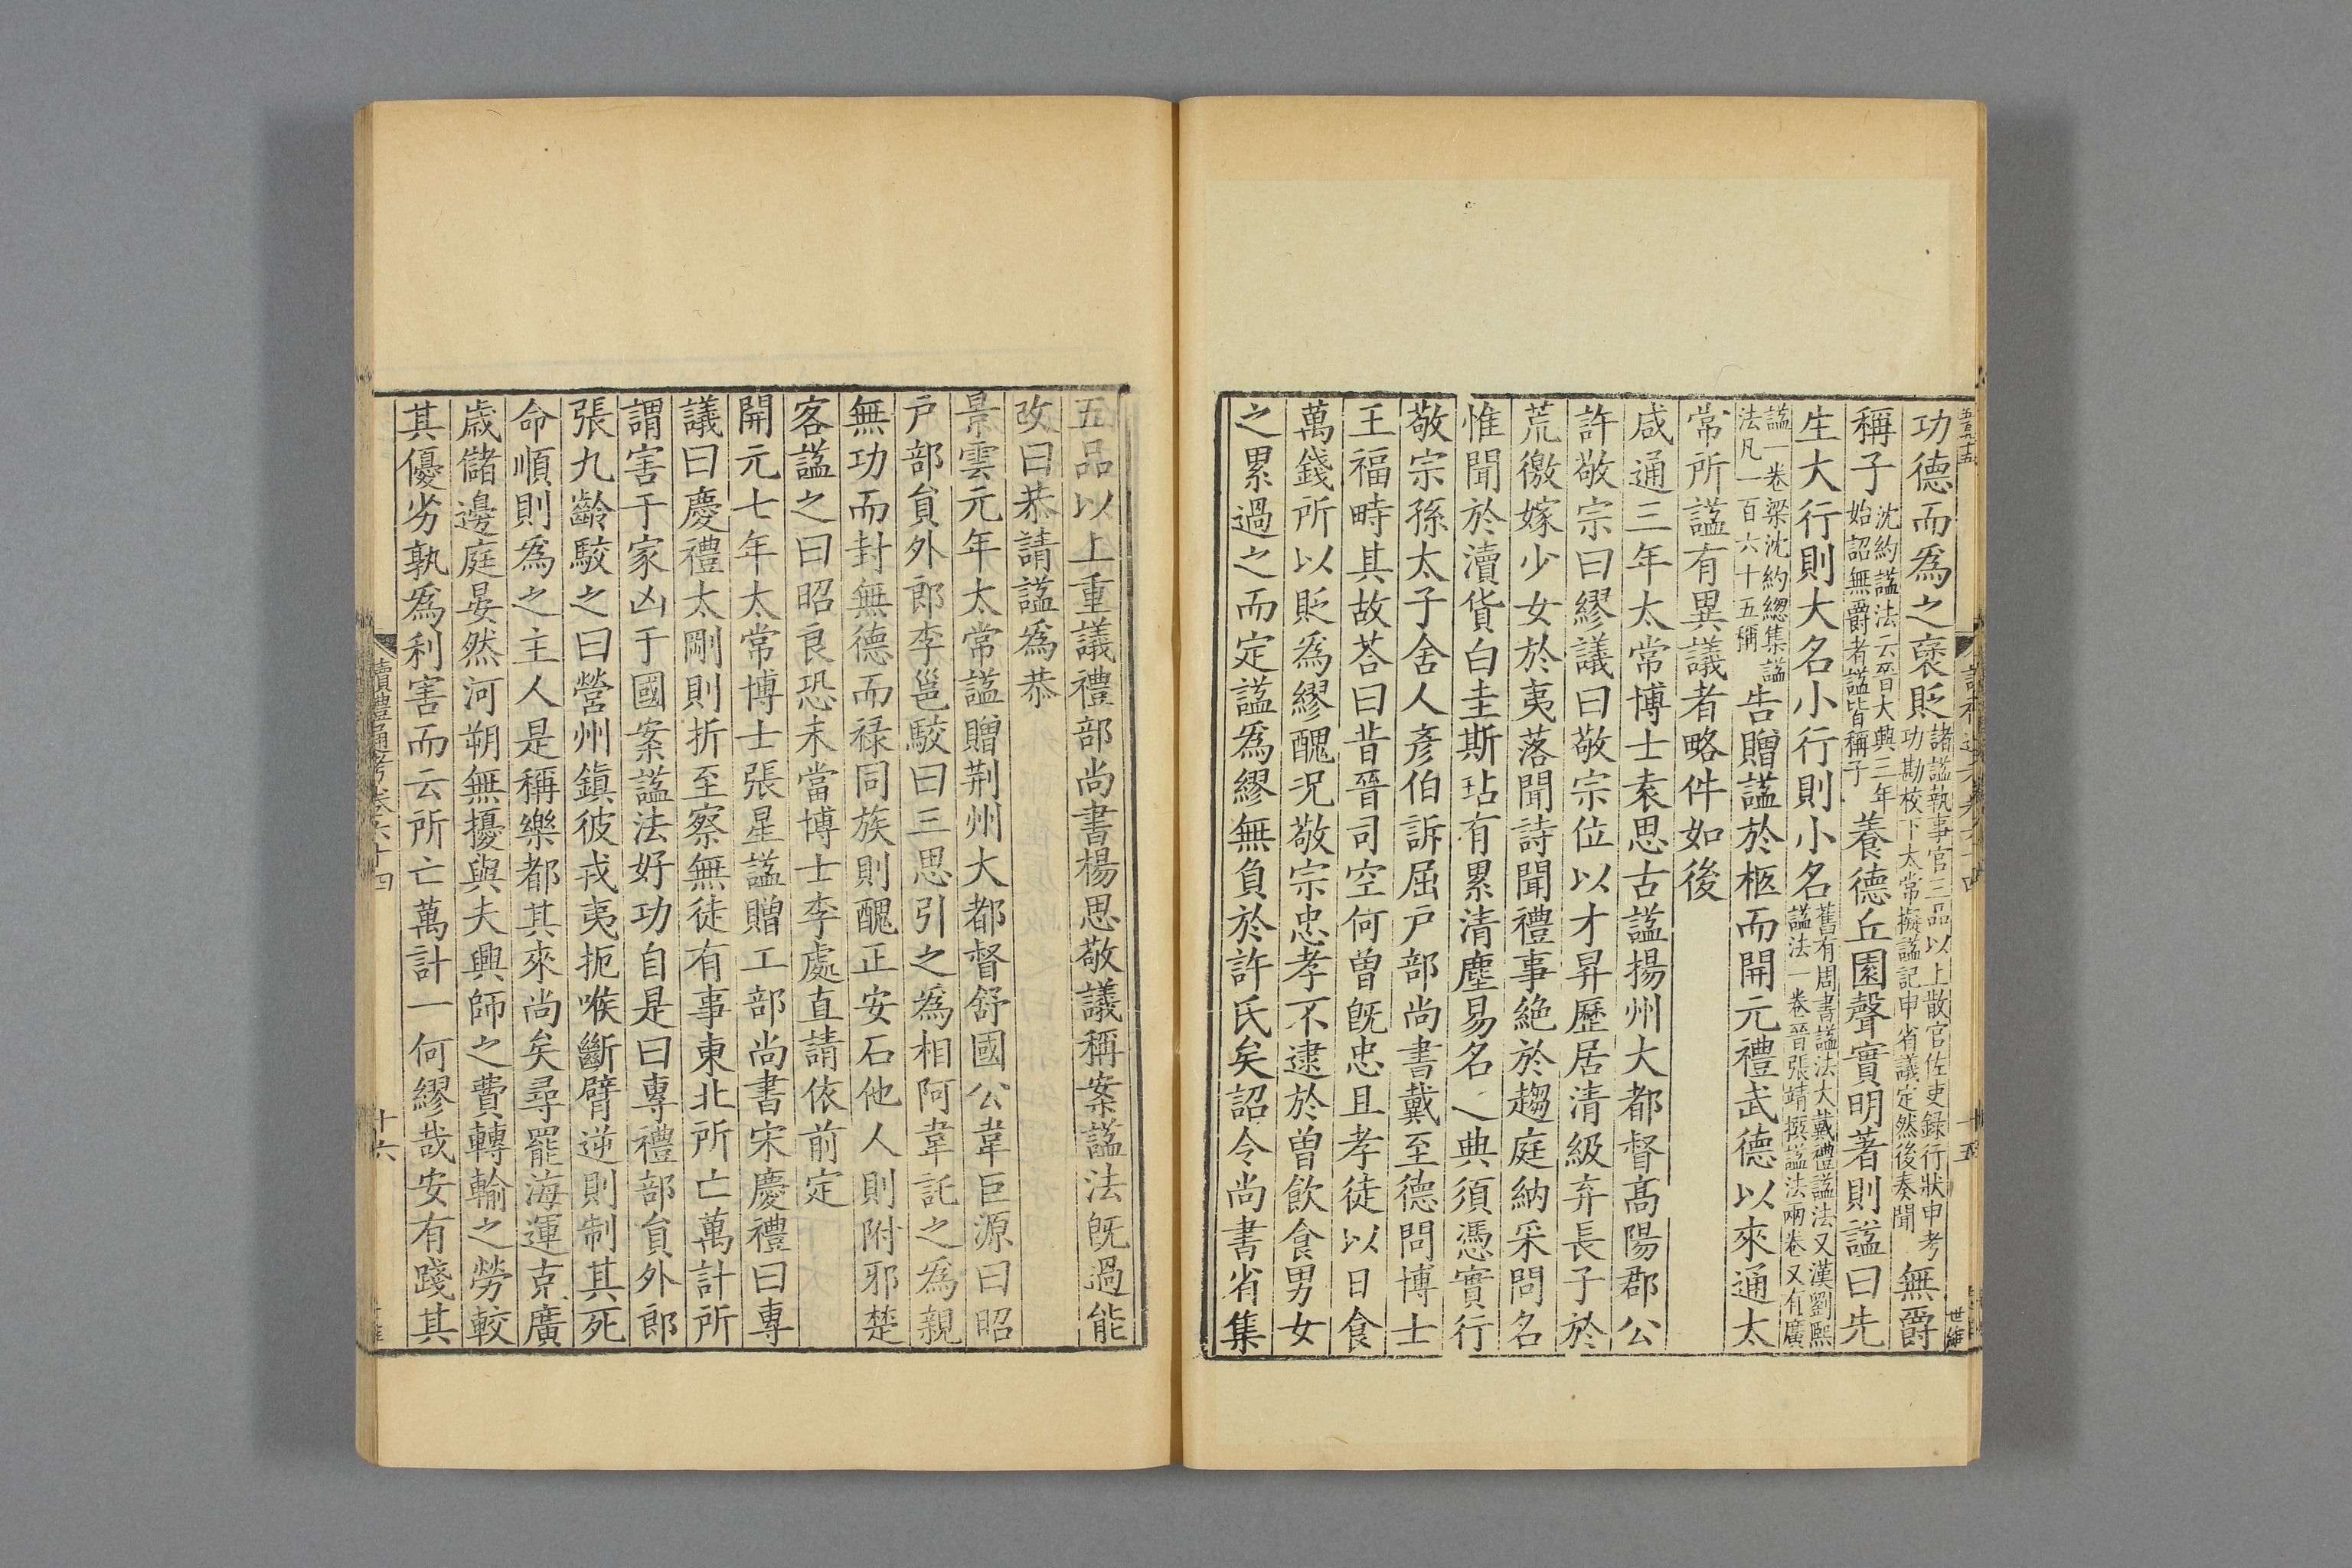 功德而爲之褒貶諸諡執事官三品以上散官佐吏錄行狀申考功勘校下太常擬諡記申省議定然後奏聞無爵
稱子沈約諡法云晉大興三年始詔無爵者諡皆稱子養德丘園聲實明著則諡曰先
生大行則大名小行則小名舊有周書諡法大戴禮諡法又漢劉熙諡法一卷晉張靖撰諡法兩卷又有廣
諡一卷梁沈約緫集諡法凡一百六十五稱告贈諡於柩而開元禮武德以來通太
常所諡有異議者略件如後
咸通三年太常博士袁思古諡揚州大都督髙陽郡公
許敬宗曰繆議曰敬宗位以才昇歷居清級弃長子於
荒徼嫁少女於夷落聞詩聞禮事絶於趨庭納采問名
惟聞於瀆貨白圭斯玷有累清塵易名之典須憑實行
敬宗孫太子舍人彥伯訴屈戶部尚書戴至德問博士
王福畤其故荅曰昔晉司空何曾旣忠且孝徒以日食
萬錢所以貶爲繆醜况敬宗忠孝不逮於曾飲食男女
之累過之而定諡爲繆無負於許氏矣詔令尚書省集
五品以上重議禮部尚書楊思敬議稱案諡法旣過能
改曰恭請諡爲恭
景雲元年太常諡贈荆州大都督舒國公韋巨源曰昭
戶部貟外郎李邕駮曰三思引之爲相阿韋託之爲親
無功而封無德而禄同族則醜正安石他人則附邪楚
客諡之曰昭良恐未當博士李處直請依前定
開元七年太常博士張星諡贈工部尚書宋慶禮曰專
議曰慶禮太剛則折至察無徒有事東北所亡萬計所
謂害于家凶于國案諡法好功自是曰專禮部貟外郎
張九齡駮之曰營州鎮彼戎夷扼喉斷臂逆則制其死
命順則爲之主人是稱樂都其來尚矣尋罷海運克廣
歲儲邊庭晏然河朔無擾與夫興師之費轉輸之勞較
其優劣孰爲利害而云所亡萬計一何繆哉安有踐其
讀禮通考卷六十四
十六
十五
世維